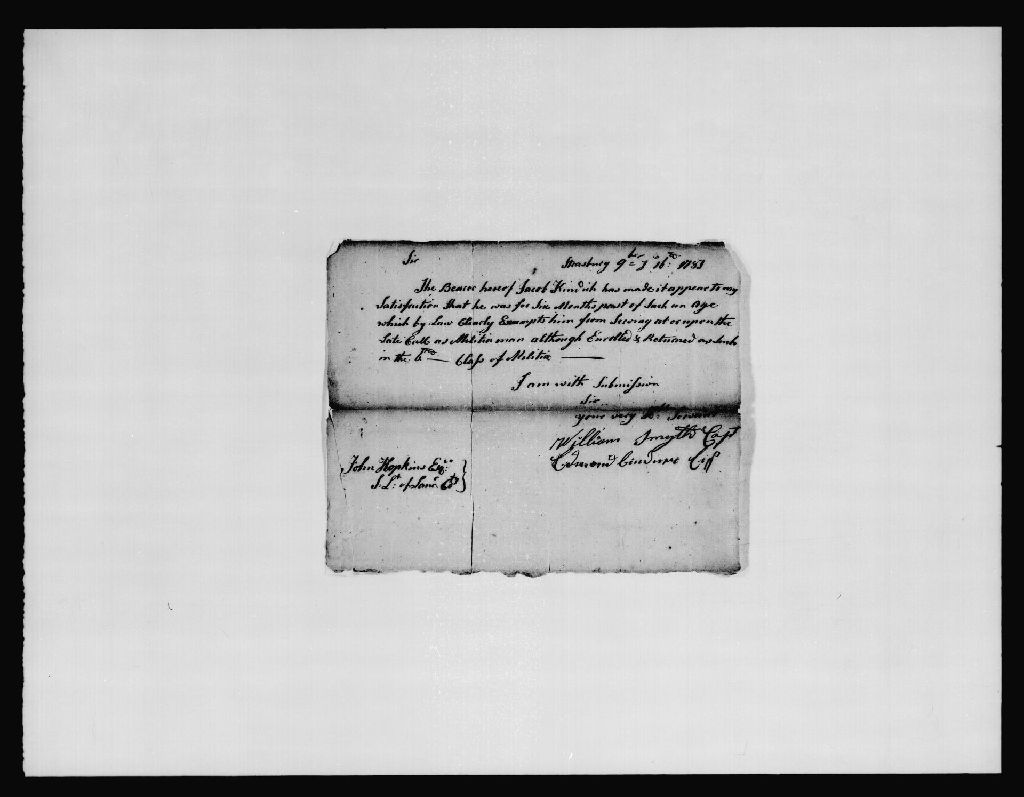 Sir Strasburg 9br 16th 1783
The Bearer hereof Jacob Kindik has made it appear to my
Satisfaction that he was for Six Months past of Such an Age
which by Law Clearly Exempts him from Serving at or upon the
Late Call as Militia man although Enrolled & Returned as Such
in the 6th Class of Militia
I am with Submission
Sir
your very Hl Servant
William Smyth Capt
John Hopkins Esqr
S. Lt of Lanr Co